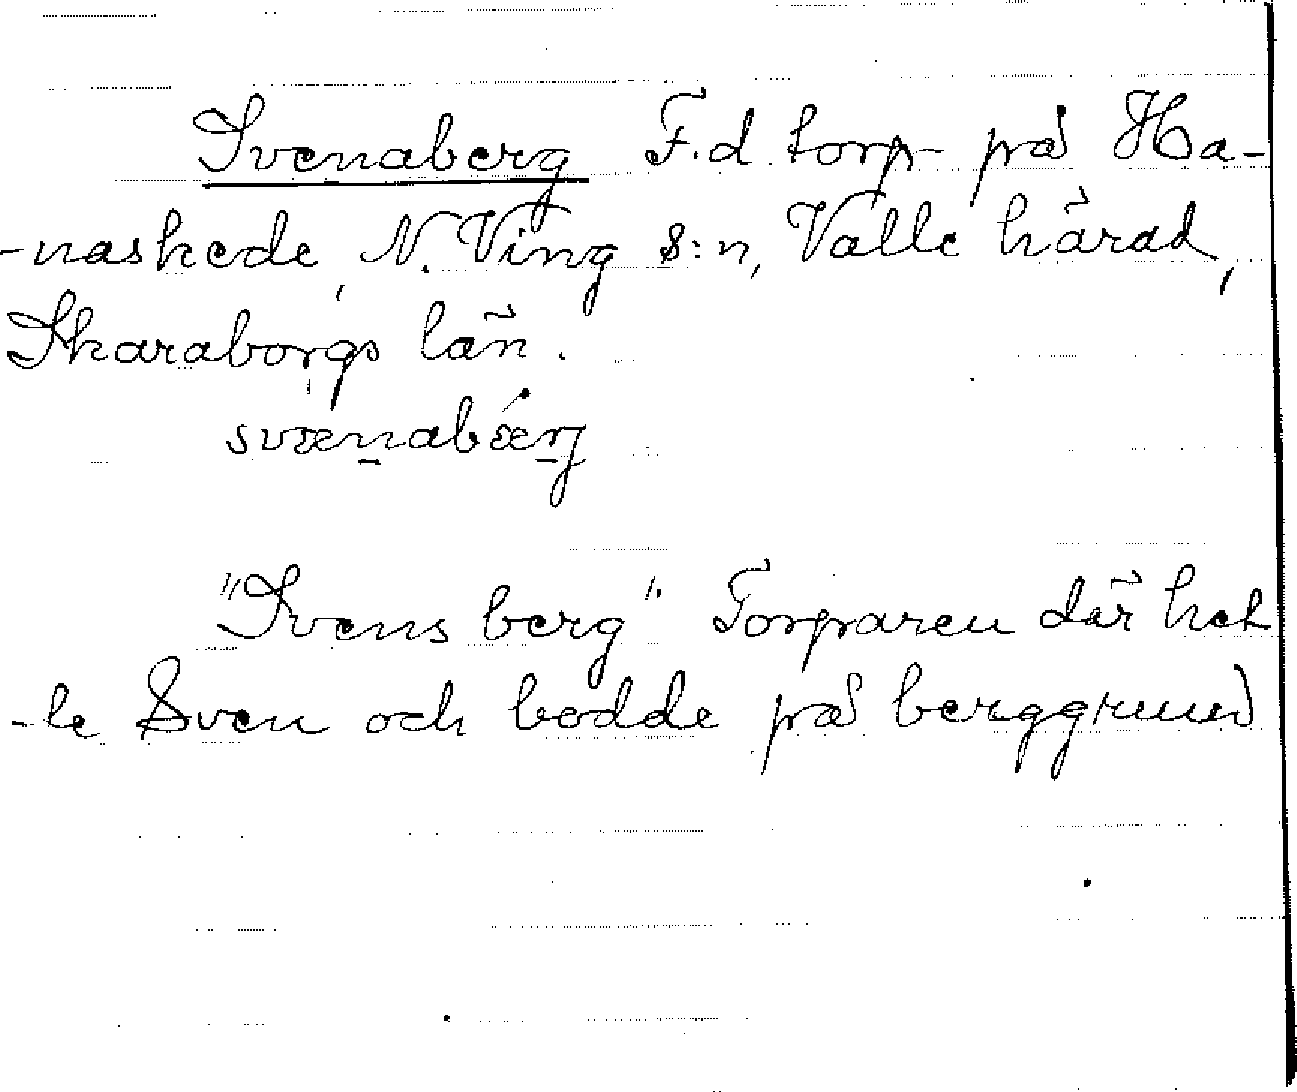 Svenaberg F.d. torp på Ha-
-naskede, N. Ving s:n, Valle härad,
Skaraborgs län.
svænabærj
"Svens berg". Torparen där het
-te Sven och bodde på berggrund